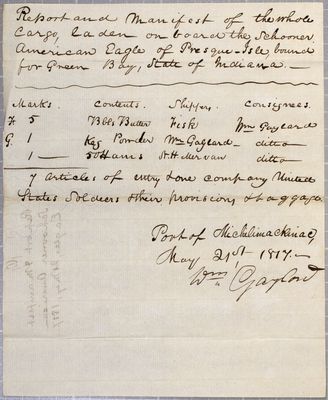 Report and Manifest of the whole
Cargo, Laden on board the Schooner
American Eagle of Presque-Isle bound
for Green Bay, State of Indiana.—
Marks. Contents. Shippers. Consignees.
F 5 Bbls Butter Fisk Wm Gaylard
G. 1 Keg Powder Wm Gaylard— ditto
1 — 50 Hams ditto
7 Articles of entry & one company United
States Soldiers their provisions & baggage
Port of Michilimackinac,
May 21st, 1817.—
Wm Gaylord